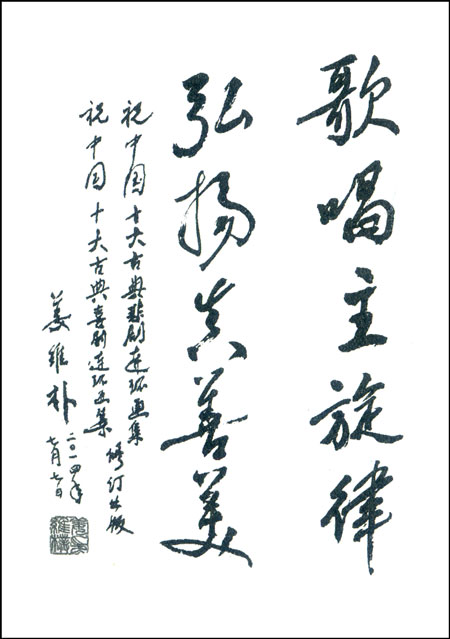 歌唱主旋律
弘扬真善美
祝中国十大古典悲剧连环画集
祝中国十大古典喜剧连环画集
修订出版
姜维朴
二〇一四年
七月七日